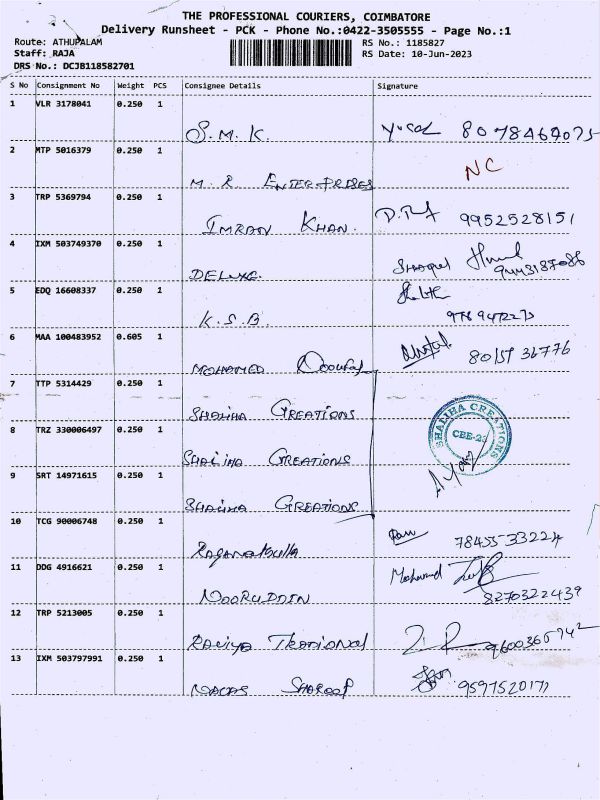 THE PROFESSIONAL COURIERS, COIMBATORE
Delivery Runsheet - PCK - Phone No.:0422-3505555 - Page No.:1
Route: ATHUPALAM RS No.: 1185827
Staff: RAJA RS Date: 10-Jun-2023
DRS No.: DCJB118582701
S No Consignment No Weight PCS Consignee Details Signature
1 VLR 3178041 0.250 1
S.M.K.
2 MTP 5016379 0.250 1 NC
M. R. ENTERPRISES
3 TRP 5369794 0.250 1
IMRAN KHAN. 9952528151
4 IXM 503749370 0.250 1
DELUXE.
5 EDQ 16608337 0.250 1
K.S.B.
6 MAA 100483952 0.605 1
MOHAMED 80159 36776
7 TTP 5314429 0.250 1
SHALIHA CREATIONS
SHALIHA CREATIONS
CBE-
8 TRZ 330006497 0.250 1
SHALIHA CREATIONS
9 SRT 14971615 0.250 1
SHALIHA CREATIONS
10 TCG 90006748 0.250 1
78455 33224
11 DDG 4916621 0.250 1 Mohamed
NOORUDDIN 8270322439
12 TRP 5213005 0.250 1
9600365742
13 IXM 503797991 0.250 1
9597520177